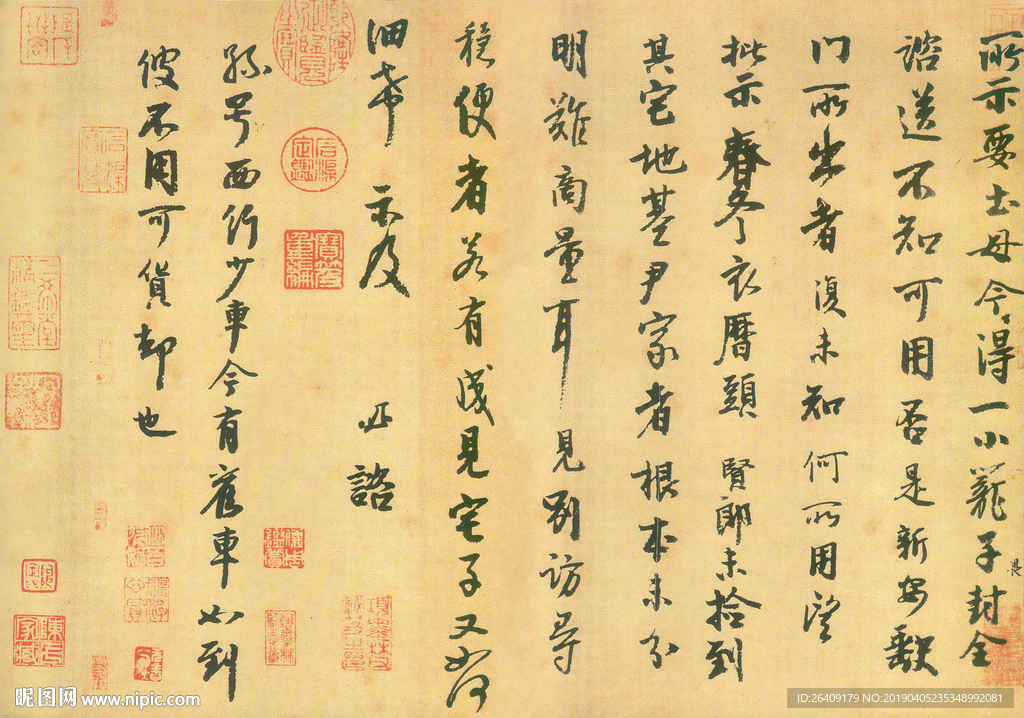 所示要土母今得一小籠子封全
諮送不知可用否是新安缺
門所出者復未知何所用望
批示春冬衣曆頭賢郎未拾到
其宅地基尹家者根本未分
明難商量耳見別訪尋
穩便者若有成見宅子又如何
細希示及諮
孫号西行少車今有舊車如到
彼不用可貨却也
昵图网 www.nipic.com
ID:26409179 NO:20190405235348992081